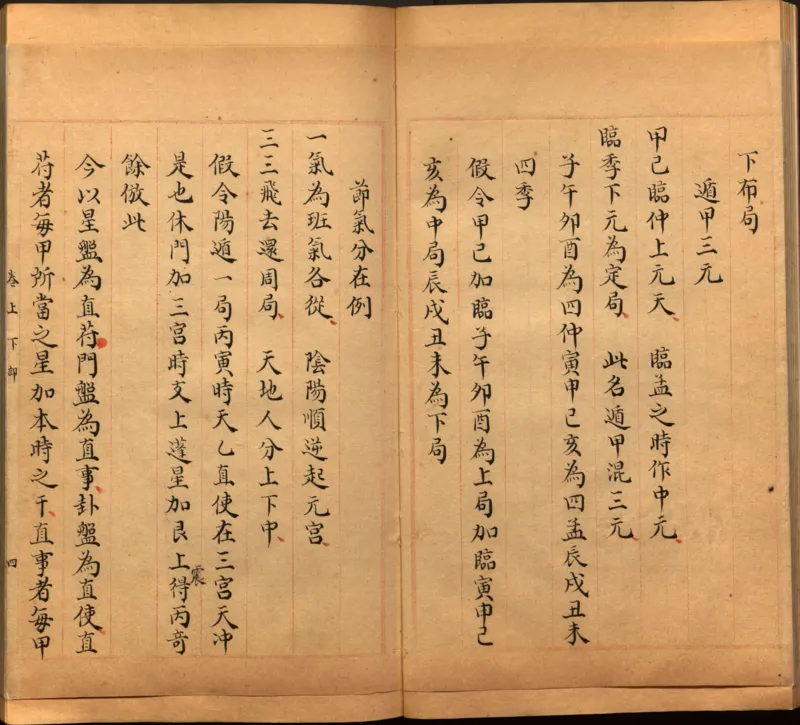 下布局
遁甲三元
甲己臨仲上元天　臨孟之時作中元
臨季下元為定局　此名遁甲混三元
子午卯酉為四仲寅申巳亥為四孟辰戌丑未
四季
假令甲己加臨子午卯酉為上局加臨寅申巳
亥為中局辰戌丑未為下局
節氣分在例
一氣為班氣各從　陰陽順逆起元宮
三三飛去還周局　天地人分上下中
假令陽遁一局丙寅時天乙直使在三宮天冲
震
是也休門加三宮時支上蓬星加艮上得丙奇
餘倣此
今以星盤為直苻門盤為直事卦盤為直使直
苻者每甲所當之星加本時之干直事者每甲
卷上　下卸　四